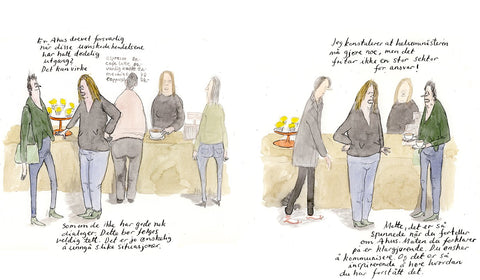 Er Ahus drevet forsvarlig
når disse uønskede hendelsene
har hatt dødelig
utgang?
Det kan virke
som om de ikke har gode nok
dialoger. Dette bør følges
veldig tett. Det er jo ønskelig
å unngå slike situasjoner.
Jeg konstaterer at helseministeren
må gjøre noe, men det
fritar ikke en stor sektor
for ansvar!
Mette, det er så
spennende når du forteller
om Ahus. Måten du forklarer
på er klargjørende. Du ønsker
å kommunisere. Og det er så
inspirerende å høre hvordan
du har forstått det.